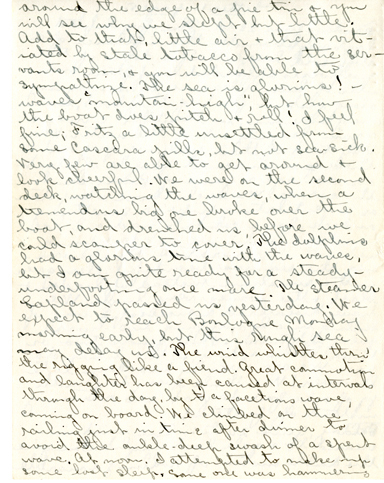 around the edge of a pie tin & you
will see why we slept but little.
Add to that, little air & that vit-
iated by stale tobacco from the ser-
vants room, & you will be able to
sympathize. The sea is glorious! -
waves "mountain-high", but how
the boat does pitch & roll! I feel
fine; Fritz a little unsettled from
some Cascara pills, but not sea-sick.
Very few are able to get around &
look cheerful. We were on the second
deck, watching the waves, when a
tremendous big one broke over the
boat, and drenched us, before we
could scamper to cover. The dolphins
had a glorious time with the waves,
but I am quite ready for a steady-
underfooting once more. The steamer
passed us yesterday. We
expect to reach Boulogne Monday
morning early, but this rough sea
may delay us. The wind whistles thru
the rigging like a fiend. Great commotion
and laughter has been caused at intervals
through the day, by a facetious wave,
coming on board. We climbed on the
railing just in time after dinner to
avoid the ankle-deep swash of a spent
wave. At noon, I attempted to make up
some lost sleep. Some one was hammering